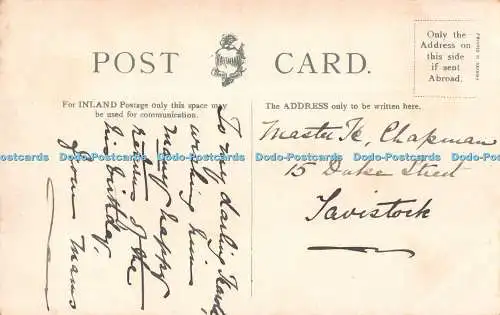 POST CARD.
Only the
Address on
this side
if sent
Abroad.
For INLAND Postage only this space may
be used for communication.
The ADDRESS only to be written here.
To my darling
wishing him
many happy
returns of the
his birthday.
from Mams
Master K. Chapman
15 Duke Street
Tavistock
Postcards Data Postcards Data Postcards Data Postcards